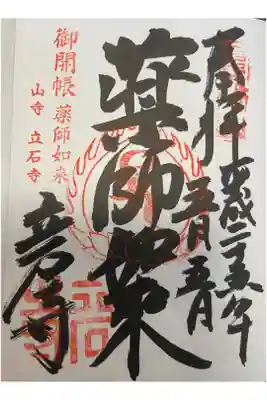 奉拝 平成二十五年
五月五日
薬師如来
御開帳 薬師如来
山寺 立石寺
立石寺